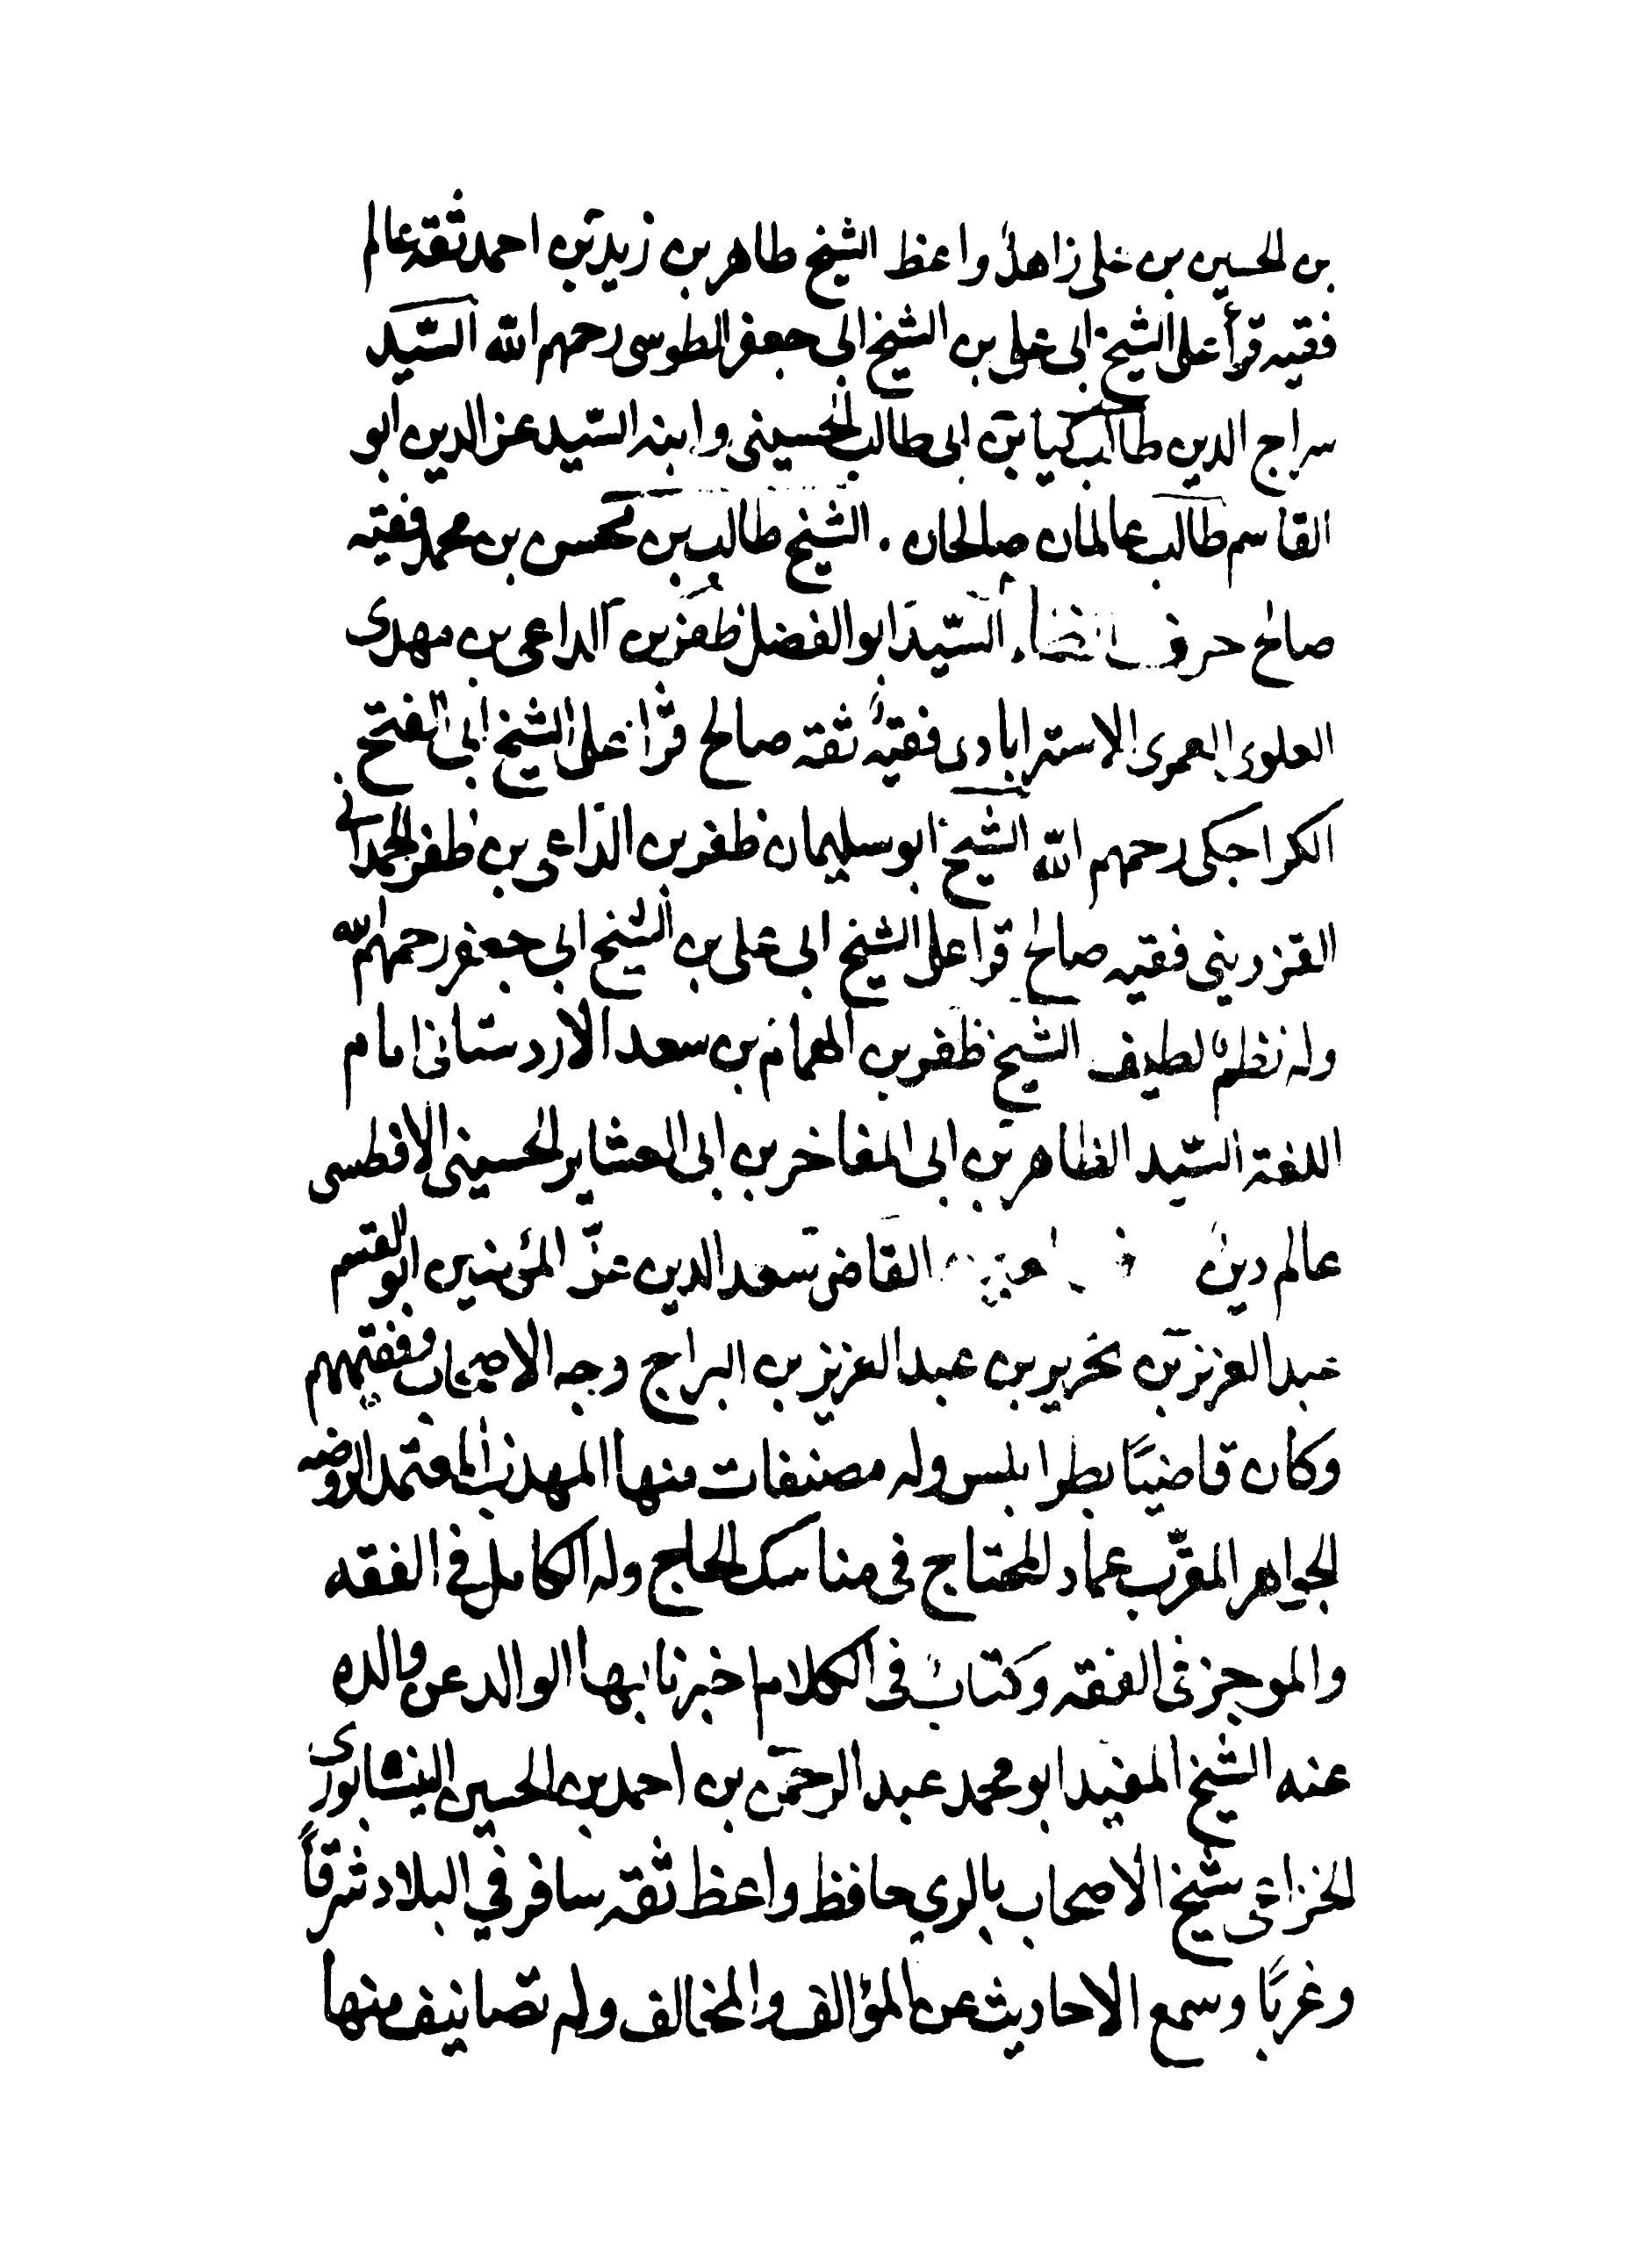 بن الحسين بن على زاهدٌ واعظ الشيخ طاهر بن زيد بن احمد ثقة عالم
فقيه قرأ على الشيخ ابى على بن الشيخ ابى جعفر الطوسى رحمهم الله السّيد
سراج الدين طالب كيا بن ابى طالب الحسينى وابنه السّيد عز الدين ابو
القاسم طالب عالمان صالحان . الشيخ طالب بن محسن بن محمد فقيه
صالح حرف الظاء السّيد ابو الفضل ظفر بن الداعى بن مهدى
العلوى العمرى الاسترابادى فقيهٌ ثقه صالح قرأ على الشيخ ابى الفتح
الكراجكى رحمهم الله الشيخ ابو سليمان ظفر بن الداعى بن ظفر الحمدانى
القزوينى فقيه صالح قرا على الشيخ ابى على بن الشيخ ابى جعفر رحمهم الله
وله نظمٌ لطيف الشيخ ظفر بن الهمام بن سعد الاردستانى امام
اللغة السّيد الظاهر بن ابى المفاخر بن ابى العشاير الحسينى الافطسى
عالم دين القاضى سعد الدين عزّ المؤمنين ابو القسم
عبد العزيز بن نحرير بن عبد العزيز بن البراج وجه الاصحاب وفقيههم
وكان قاضيًا بطرابلس وله مصنفات منها المهذب المعتمد الروضه
الجواهر المقرّب عماد المحتاج فى مناسك الحاج وله الكامل فى الفقه
والموجز فى الفقه وكتابٌ فى الكلام اخبرنا بها الوالد عن والده
عنه الشيخ المفيد ابو محمد عبد الرحمن بن احمد بن الحسين النيشابورى
الخزاعى شيخ الاصحاب بالري حافظ واعظ ثقه سافر في البلاد شرقاً
وغربًا وسمع الاحاديث عن المؤالف والمخالف وله تصانيف منها